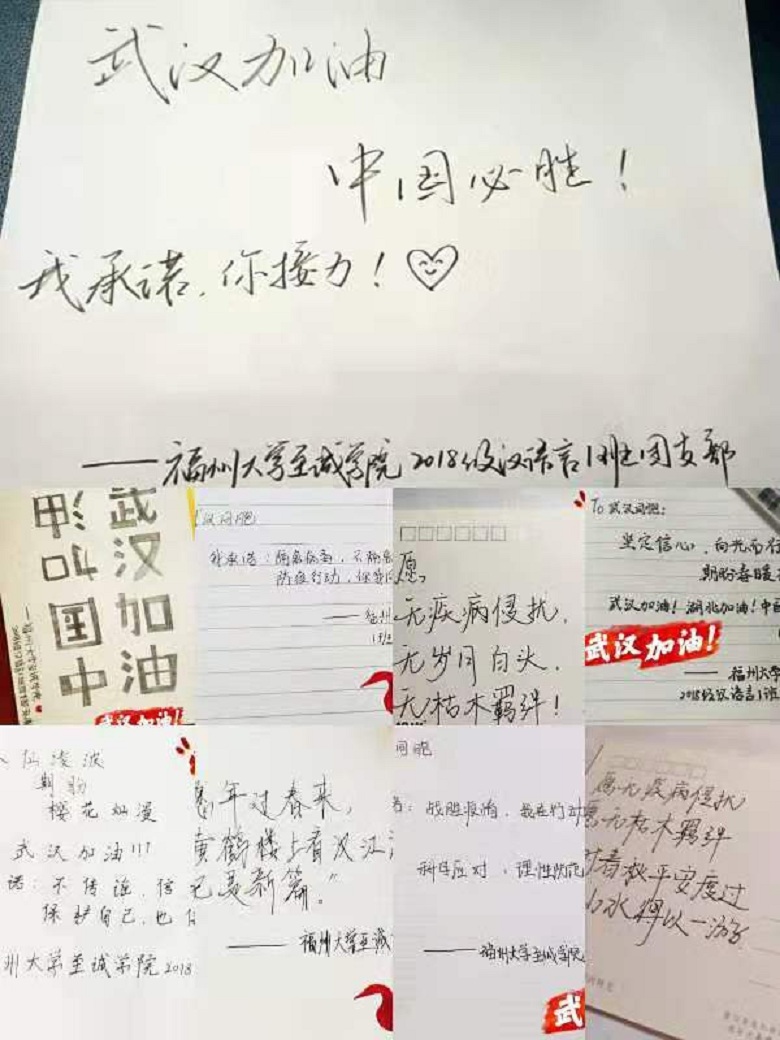 武汉加油
中国必胜！
我承诺，你接力！
——福州大学至诚学院2018级汉语言1班团支部
武汉加油
中国
武汉加油!
汉同胞
我承诺：隔离病毒，不隔
防疫行动，
——福州
1班
愿，
无疾病侵扰，
无岁月白头，
无枯木羁绊！
To 武汉同胞：
坚定信心，向光而行
期盼春暖
武汉加油！湖北加油！中国
武汉加油!
——福州大学
2018级汉语言1班
仙凌波
期盼
樱花灿漫
武汉加油!!!
诺：不传谣，信
保护自己，也
州大学至诚学院2018
年过春来，
黄鹤楼上看汉江
已是新篇。”
——福州大学至诚
同胞
战胜疫情，我在行动
科学应对，理性防范
——福州大学至诚学院
武
愿无疾病侵扰
愿无枯木羁绊
平安度过
山水得以一游